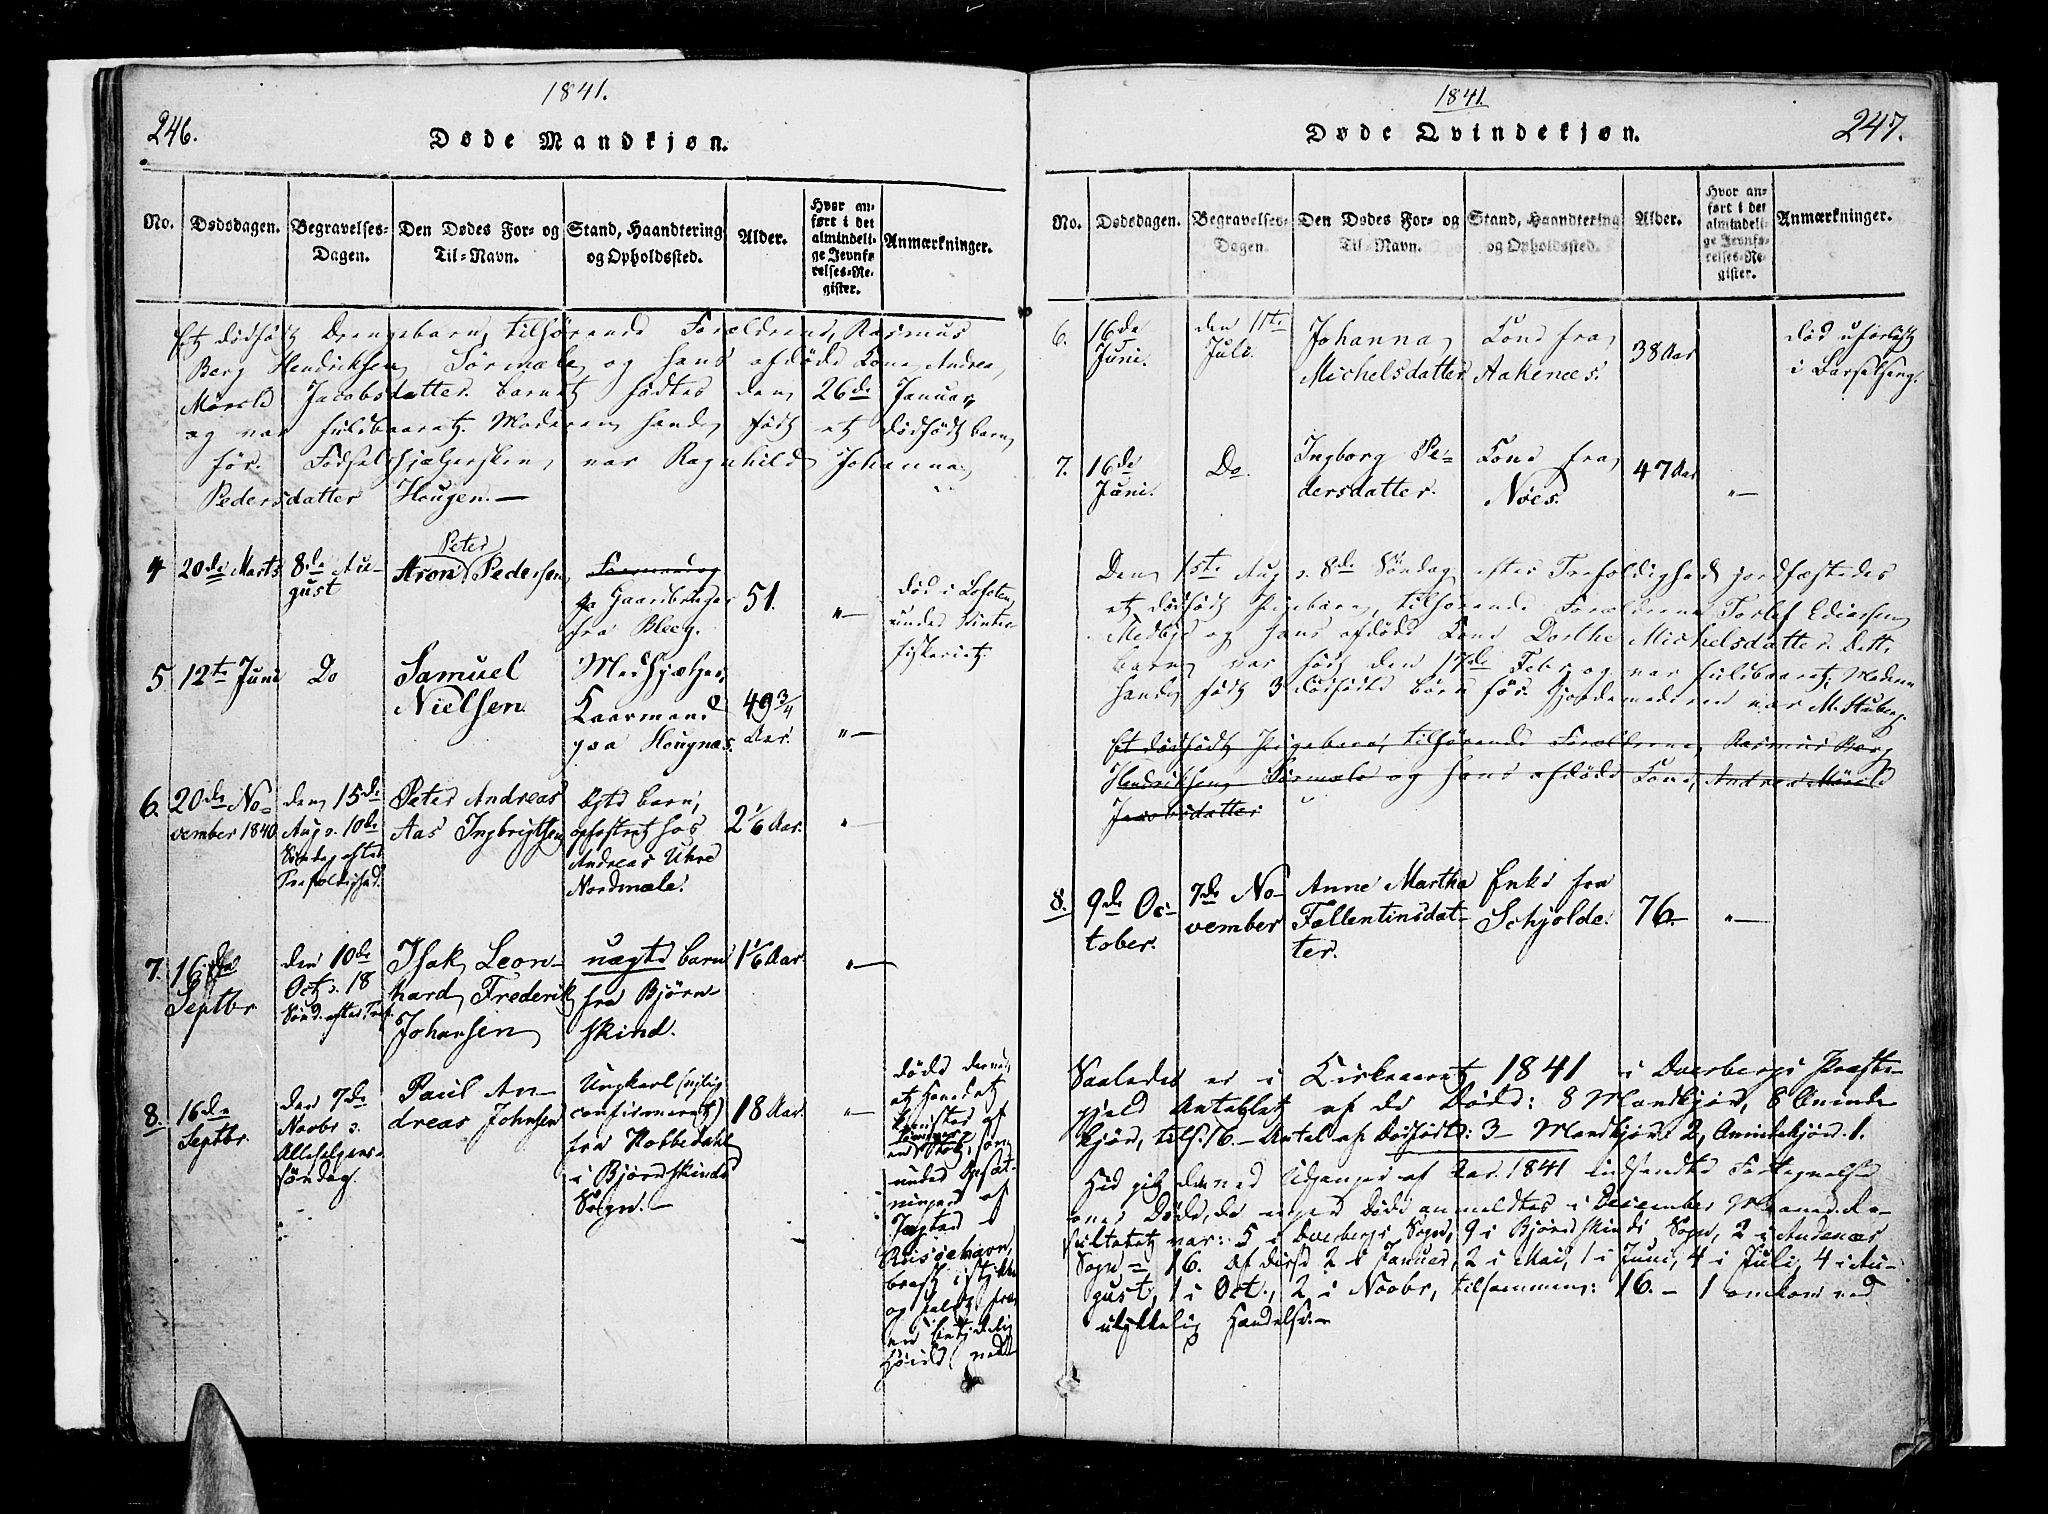 1841.
246.
Døde Mandkjøn.
No.
Dødsdagen.
Begravelses-
Dagen.
Den Dødes For- og
Til-Navn.
Stand, Haandtering
og Opholdssted.
Alder.
Hvor an-
ført i det
almindeli-
ge Jevnfø-
relses-Re-
gister.
Anmærkninger.
Et dødfødt Drengebarn, tilhørende Forældrene, Rasmus
Berg Hendriksen Sørmæle og hans afdøde Kone, Andrea
Mørch Jacobsdatter. Barnet fødtes den 26de Januar,
og var fuldbaaret. Moderen havde født et dødfødt barn
før. Fødselshjælpersken var Ragnhild Johanna
Pedersdatter Hougen.—
4
20de Marts
8de Au-
gust
Peter
Aron Pedersen
Gaardbruger
fra Bleeg.
51.
"—
død i Lofoten
under Vinter-
fiskeriet.
5
12te Juni
Do
Samuel
Nielsen
Medhjelper,
Kaarmand
paa Hougnæs.
49 3/4
Aar.
"—
6.
20de No-
vember 1840
den 15de
Aug. s. 10de
Søndag efter
Trefoldighed.
Peter Andreas
Aas Ingbrigtsen
Ægte barn,
opfostret hos
Andreas Uhre
Nordmæle.
2 1/6 Aar.
"—
7.
16de
Septbr
den 10de
Oct. s. 18
Sønd. efter Tref.
Isak Leon-
hard Frederik
Johansen
uægte barn
fra Bjørn-
skind.
1 1/6 Aar.
"—
8.
16de
Septbr.
den 7de
Novbr s.
Allehelgens-
søndag.
Paul An-
dreas Johnsen
Ungkarl (nylig
confirmeret)
fra Nobbedahl
i Bjørnskinds
Sogn.—
18 Aar.
"—
døde derved,
at
af
som
under Opsæt-
ningen af
Jægten i
Risøehavn,
brast i stykker
og faldt fra
en betydelig
høide ned
1841.
247.
Døde Qvindekjøn.
No.
Dødsdagen.
Begravelses-
Dagen.
Den Dødes For- og
Til-Navn.
Stand, Haandtering
og Opholdssted.
Alder.
Hvor an-
ført i det
almindeli-
ge Jevnfø-
relses-Re-
gister.
Anmærkninger.
6.
16de
Juni.
den 11te
Juli.
Johanna
Michelsdatter
Kone fra
Aakenæs.
38 Aar
død uforløst
i Barselseng.
7.
16de
Juni.
Do.
Ingborg Pe-
dersdatter.
Kone fra
Nøes.
47 Aar
"—
Den 1ste Aug. s. 8de Søndag efter Trefoldighed jordfæstedes
et dødfødt Pigebarn, tilhørende Forældrene Torlef Ediassen
Medbye og hans afdøde Kone Dorthe Michelsdatter. Dette
barn var født den 17de Febr. og var fuldbaaret; Moderen
havde født 3 dødfødte børn før. Gjordemoderen var M. Stuberg.
Et dødfødt Pigebarn, tilhørende Forældrene, Rasmus Berg
Hendriksen Sørmæle og hans afdøde Kone, Andrea Mørch
Jacobsdatter
8.
9de Oc-
tober.
7de No-
vember
Anne Martha
Fallentinsdat-
ter.
Enke fra
Schjolde.
76.
"—
Saaledes er i Kirkeaaret 1841 i Dverbergs Præste-
gjeld Antallet af de Døde: 8 Mandkjøn, 8 Qvinde-
kjøn, tils. 16.— Antal af Dødfødte: 3 — Mandkjøn: 2, Qvindekjøn 1.
Hid gik den ved Udgangen af Aar. 1841 indsendte Fortegnelse
over Døde, da ingen Døde anmeldtes i December Maaned. Re-
sultatet var: 5 i Dverbergs Sogn, 9 i Bjørnskinds Sogn, 2 i Andenæs
Sogn = 16. Af disse 2 i Januar, 2 i Mai, 1 i Juni, 4 i Juli, 4 i Au-
gust, 1 i Oct., 2 i Novbr, tilsammen: 16.— 1 omkom ved
ulykkelig Hændelse.—